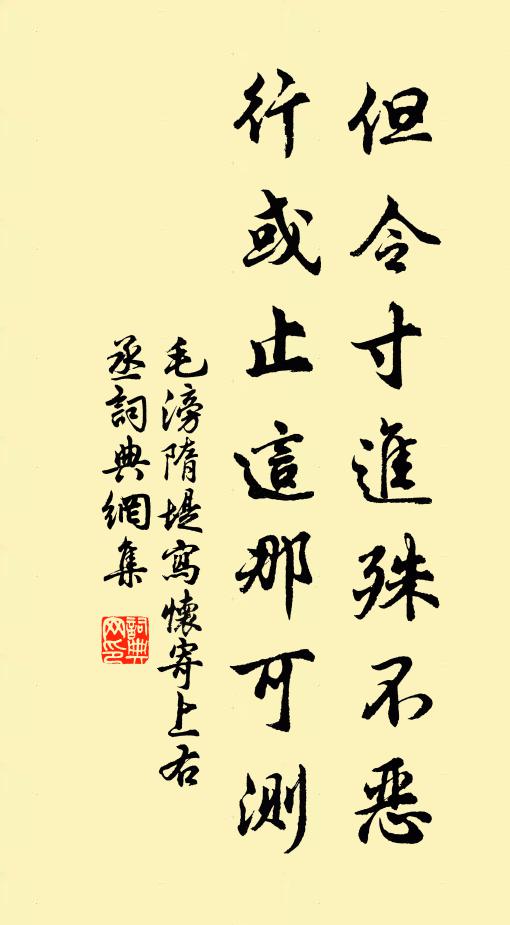 但令寸進殊不惡
行或止這那可測
毛滂隋堤寫懷寄上右
丞詞典網集
詞典
网印